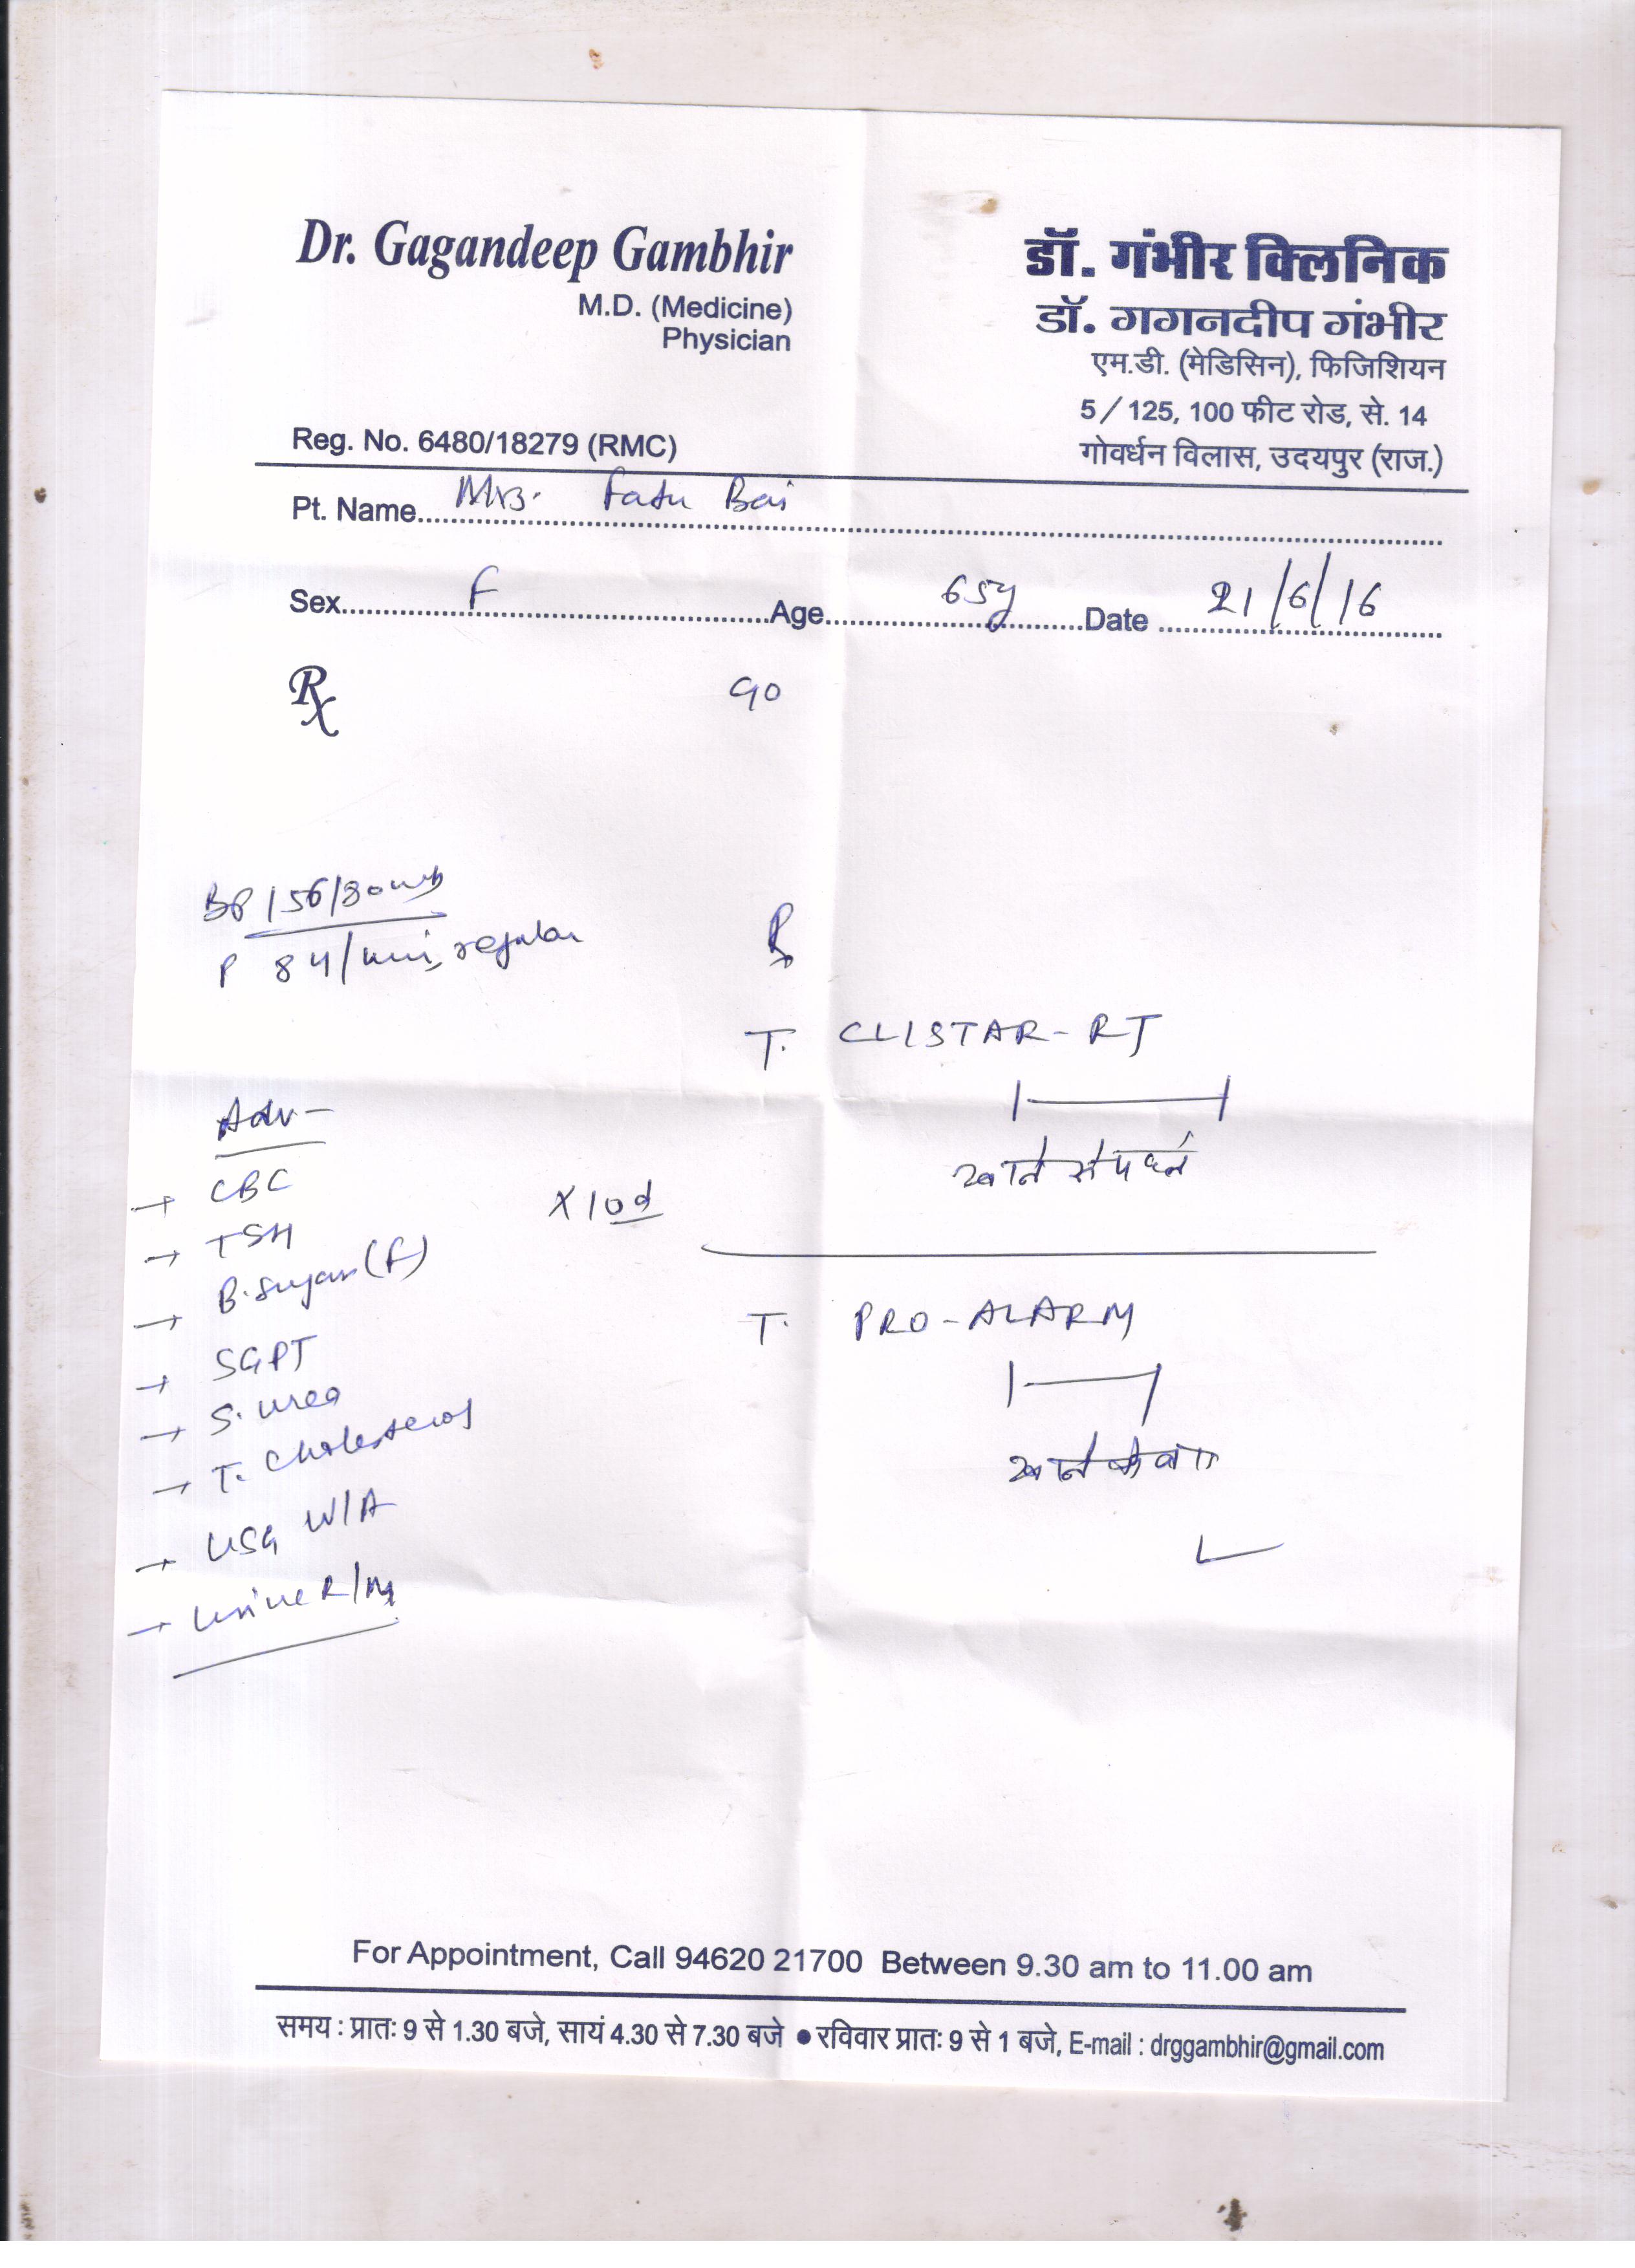 Dr. Gagandeep Gambhir
M.D. (Medicine)
Physician
Reg. No. 6480/18279 (RMC)
डॉ. गंभीर क्लिनिक
डॉ. गगनदीप गंभीर
एम.डी. (मेडिसिन), फिजिशियन
5/125, 100 फीट रोड, से. 14
गोवर्धन विलास, उदयपुर (राज.)
Pt. Name Mrs. Fatu Bai
Sex F Age 65y Date 21/6/16
Rx
BP 156/80
P 84/min, regular
Rx
T. CLISTAR-RT
खाने से पहले
Adv-
→ CBC
→ TSH
→ B.sugar (f)
→ SGPT
→ S. urea
→ T. Cholesterol
→ USG W/A
→ Urine R/M
X 10d
T. PRO-ALARM
खाने के बाद
For Appointment, Call 94620 21700 Between 9.30 am to 11.00 am
समय : प्रातः 9 से 1.30 बजे, सायं 4.30 से 7.30 बजे ● रविवार प्रातः 9 से 1 बजे, E-mail : drggambhir@gmail.com